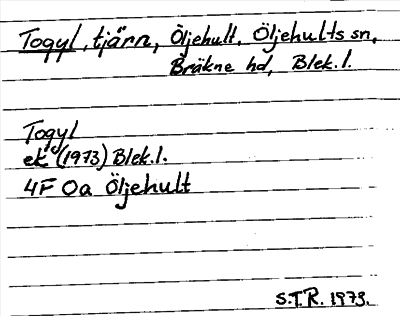 Togyl, tjärn, Öljehult, Öljehults sn,
Bräkne hd, Blek.l.
Togyl
ek (1973) Blek.l.
4F 0a Öljehult
S.T.R. 1973.